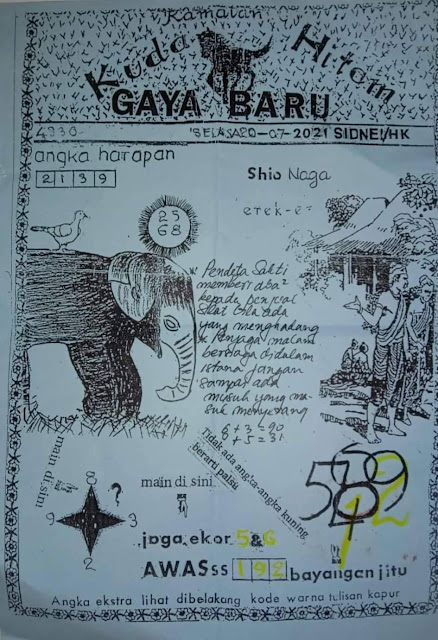 Ramalan
Kuda Hitam
GAYA BARU
4230-
SELASA 20-07-2021 SIDNEI/HK
angka harapan
2 1 3 9
Shio Naga
erek-e
25
68
* Pendita Sakti
memberi aba²
kepada
ada
yang menghadang
* Penjaga malam
berjaga didalam
istana jangan
sampai ada
musuh yang ma-
suk menyerang
6+3=90
6+5=31
Tidak ada angka-angka kuning
berarti palsu
main di sini
main di sini
8
?
9 3
2
jaga ekor 5&6
AWASss 1 9 2 bayangan jitu
Angka ekstra lihat dibelakang kode warna tulisan kapur